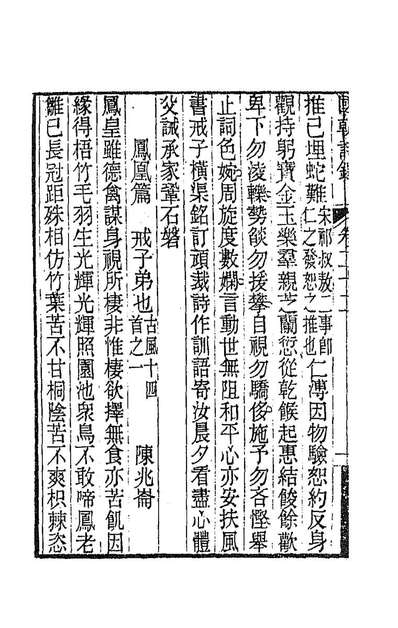 國朝詩鐸 卷二十二
推已埋蛇難宋祁叔敖二事卽仁之發恕之推也仁溥因物驗恕約反身
觀持躬寶金玉樂羣親芝蘭愆從乾餱起惠結餕餘歡
卑下勿淩轢勢燄勿援攀自視勿驕侈施予勿吝慳舉
止詞色婉周旋度數嫻言動世無阻和平心亦安扶風
書戒子橫渠銘訂頑裁詩作訓語寄汝晨夕看盡心體
父誡承家鞏石磐
鳳凰篇 戒子弟也古風十四首之一 陳兆崙
鳳皇雖德禽謀身視所棲非惟棲欲擇無食亦苦飢因
緣得梧竹毛羽生光輝光輝照園池衆鳥不敢啼鳳老
雛已長冠距殊相仿竹葉苦不甘桐陰苦不爽枳棘恣